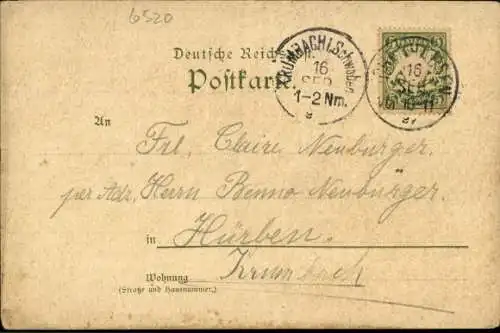 6520
Deutsche Reichs
Postkarte.
KRUMBACH i. Schwaben
16
SEP.
1-2 Nm.
16
SEP
An
Frl. Claire Neuburger.
per Adr. Herrn Benno Neubürger.
in Hürben.
Krumbach
Wohnung
(Straße und Hausnummer.)